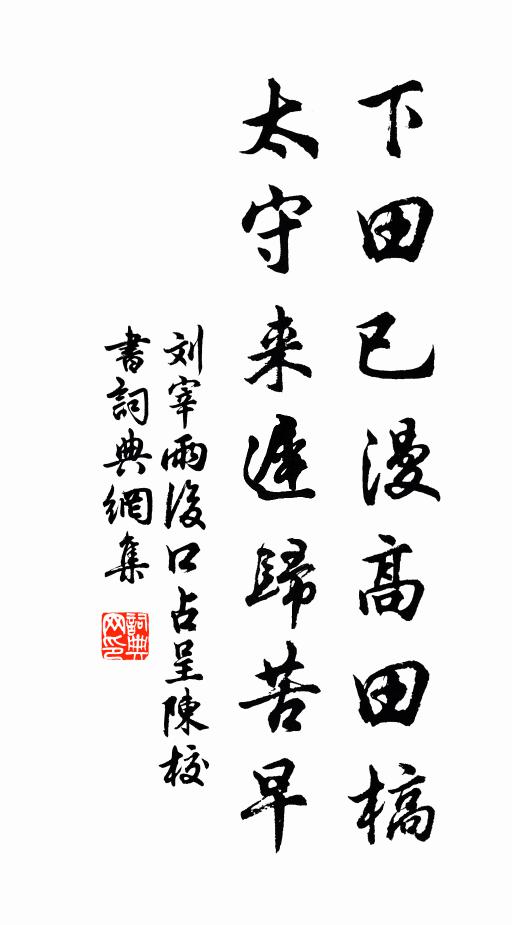 下田已漫高田槁
太守来遲歸苦早
刘宰雨後口占呈陳校
書詞典網集
詞典网印